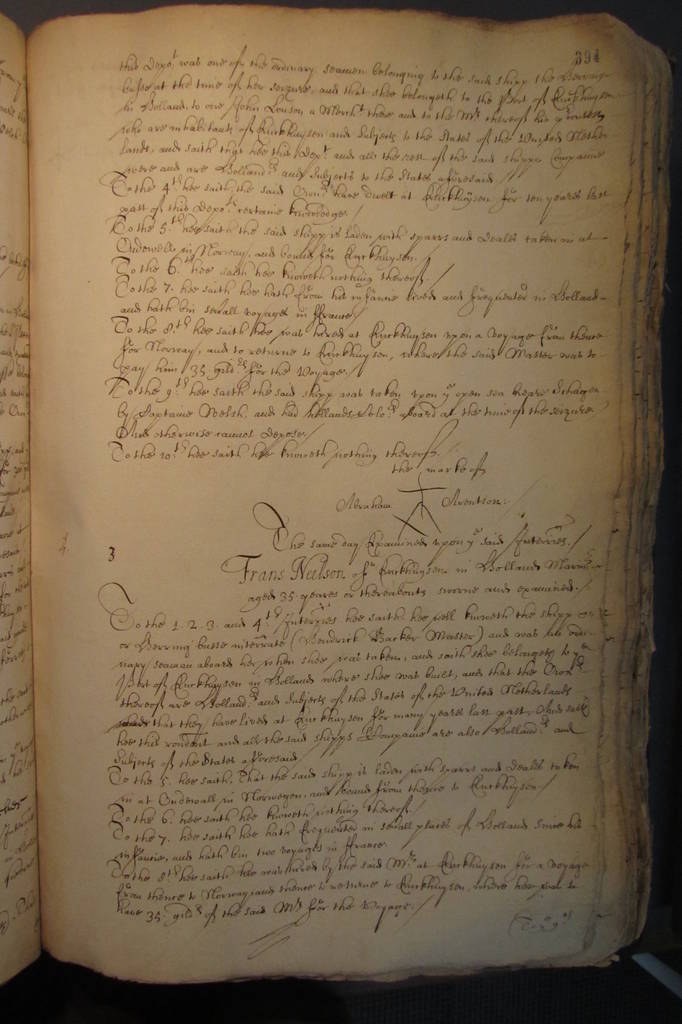 394
this Depot. was one of the ordinary seamen belonging to the said shipp the Herring
busse at the time of her seizure, and that shee belongeth to the Port of Enckhuysen
in Holland, to one John Louson a Mercht. there and to the Mr. thereof his
who are inhabitants of Enckhuysen and Subjects to the States of the United Nether
lands, and saith that hee this Depot. and all the rest of the said shipps Companie
were and are Hollandrs. and Subjects to the States aforesaid.
To the 4th. hee saith the said have dwelt at Enckhuysen for ten yeares last
past of this Depots. certaine knowledge./
To the 5th. hee saith the said shipp is laden with sparrs and Deales taken in at
in Norway, and bound for Enckhuysen.
To the 6th. hee saith hee knoweth nothing thereof./
To the 7. hee saith hee hath from his infancie lived and frequented in Holland
and hath bin severall voyages in ffrance./
To the 8th. hee saith hee was hired at Enckhuysen upon a voyage from thence
for Norway, and to returne to Enckhuysen, where the said Master was to
pay him 35 gildrs for the Voyage.
To the 9th. hee saith the said shipp was taken upon ye open sea
by Captaine Welsh, and had hollands Colors. aboard at the time of the seizure
And otherwise cannot depose./
To the 10th. hee saith hee knoweth nothing thereof./
the marke of
Abraham Arentson./
The same day Examined upon ye said Interries./
3
Frans Neelson of Enckhuysen in Holland Mariner
aged 35 yeares or thereabouts sworne and examined./
To the 1. 2. 3. and 4th Interries hee saith hee well knoweth the shipp
or Herring busse interrate (Hendrick Backer Master) and was an ordi
nary seaman aboard her when shee was taken, and saith shee belongeth to ye
Port of Enckhuysen in Holland where shee was built, and that the
thereof are Hollandrs. and Subjects of the States of the United Netherlands
that they have lived at Enckhuysen for many yeares last past, And saith
hee this rondent and all the said shipps Companie are also Hollandrs. and
Subjects of the States aforesaid.
To the 5. hee saith, That the said shipp is laden with sparrs and Deales taken
in at in Norwegen, and bound from thence to Enckhuysen./
To the 6. hee saith hee knoweth nothing thereof./
To the 7. hee saith hee hath frequented in severall places of Holland since his
infancie, and hath bin two voyages in ffrance.
To the 8th hee saith hee was hired by the said Mr. at Enckhuysen for a voyage
from thence to Norway and thence to returne to Enckhuysen, where hee was to
have 35 gildrs of the said Mr for the Voyage./